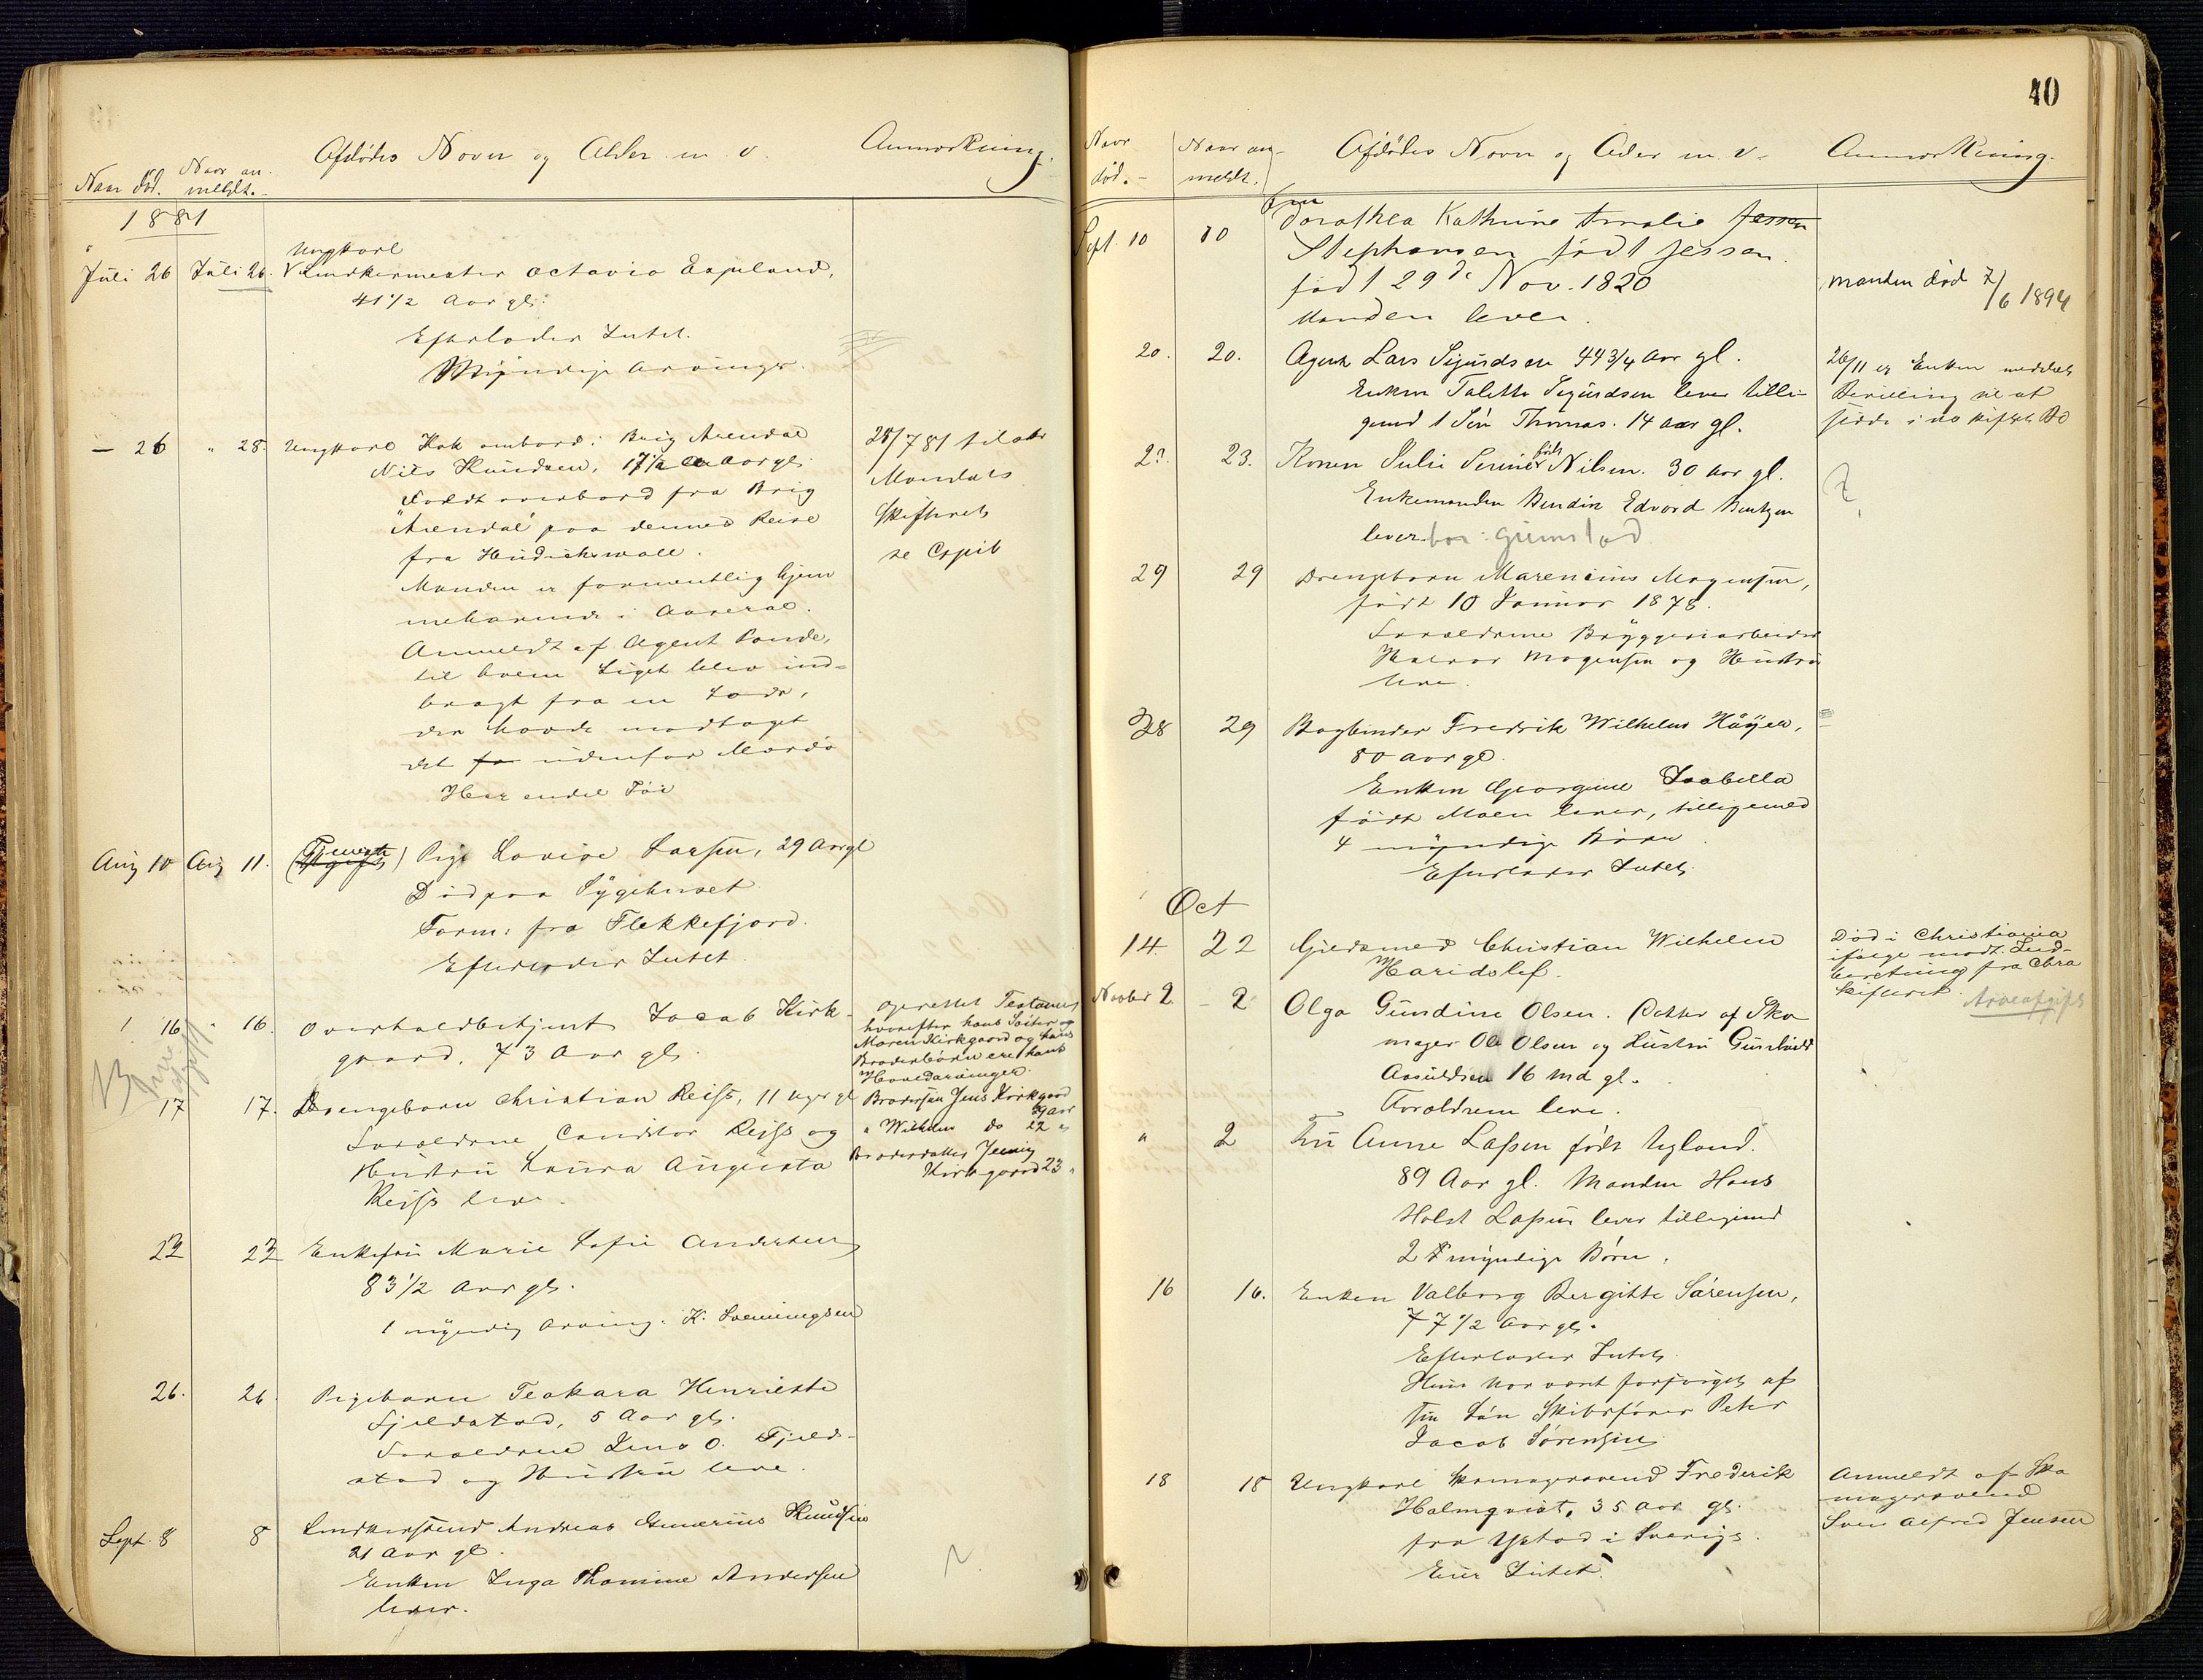 Naar død.
Naar an-
meldt.
Afdødes Navn og Alder m. v.
Anmærkning.
1881
Juli 26 Juli 26. Ungkarl
Snedkermester Octavio Espeland,
41 1/2 Aar gl.
Efterlader Intet.
Myndige Arvinger.
— 26 " 28. Ungkarl Kok ombord i Brig Arendal
Niels Knudsen, 17 1/2 Aar gl.
Faldt overbord fra Brig
"Arendal" paa dennes Reise
fra Hudichswall.
Manden er formentlig hjem
mehørende i Aaseral.
Anmeldt af Agent Pande,
til hvem Liget blev ind-
bragt fra en Lods,
der havde modtaget
det fra udenfor Mærdø
Har endel Tøi
28/7 81 til
Mandals
Skifteret
se Copib
Aug 10 Aug 11. (Tjeneste) Pige Lovise Larsen, 29 Aar gl
Død paa Sygehuset
Form. fra Flekkefjord.
Efterlader Intet.
16 " 16. Overtoldbetjent Jacob Kirk-
gaard, 73 Aar gl.
oprettet Testament
hvorefter hans Søster
Maren Kirkgaard og hans
Broderbørn ere hans
Hovedarvinger.
Brodersøn Jens Kirkgaard
39 aar
" Wilhelm do 22 "
Broderdatter Jenny
Kirkgaard 23 "
17 17. Drengebarn Christian Reiss, 11 Uger gl
Forældrene Conditor Reiss og
Hustru Laura Augusta
Reiss leve.
22 22 Enkefru Marie Sofie Andersen
83 1/2 Aar gl.
1 myndig Arving: K. Svenningsen
26. 26. Pigebarn Teakara Henriette
Fjeldstad, 5 Aar gl.
Forældrene Jens O. Fjeld-
stad og Hustru leve.
Sept. 8 8 Snedkersvend Andreas Gunerius Knudsen
21 Aar gl.
Enken Inga Thomine Andersen
lever.
40
Naar
død.
Naar an-
meldt.
Afdødes Navn og Alder m. v.
Anmærkning.
Sept. 10 10 Fru
Dorothea Kathrine Amalie Jessen
Stephansen født Jessen.
født 29de Nov. 1820
Manden lever.
Manden død 7/6 1894
20. 20. Agent Lars Sigurdsen 44 3/4 Aar gl.
Enken Talette Sigurdsen lever tilli-
gemed 1 Søn Thomas. 14 aar gl.
26/11 er Enken meddelt
Bevilling til at
sidde i uskiftet Bo
23. Konen Julie Serine født Nilsen. 30 Aar gl.
Enkemanden Bendix Edvard Bentzen
lever bor: Grimstad
29 29 Drengebarn Marencius Mogensen,
født 10 Januar 1878.
Forældrene Bryggeriarbeider
Halvor Mogensen og Hustru
leve.
28 29 Bogbinder Fredrik Wilhelm Høyer,
80 aar gl.
Enken Georgine Isabella
født Moen lever, tilligemed
4 myndige Børn.
Efterlader Intet.
Oct
14. 22 Gjedsmed Christian Wilhelm
Haridslef.
Død i Christiania
ifølge modt. Ind-
beretning fra Chra
Skifteret Arveafgift
Novber 2 – 2 Olga Gundine Olsen. Datter af Sko
mager Ole Olsen og Hustru Gunhild
Asuldsen 16 Md gl.
Forældrene leve.
" 2 Fru Anne Lassen født Ugland.
89 Aar gl. Manden Hans
Holst Lassen lever tilligemed
2 myndige Børn.
16 16. Enken Valborg Bergitte Sørensen,
77 1/2 Aar gl.
Efterlader Intet.
Hun har vært forsørget af
sin Søn Skibsfører Peter
Jacob Sørensen
18 18 Ungkarl Skomagersvend Frederik
Halmqvist, 35 Aar gl.
fra Ystad i Sverige.
Eier Intet.
Anmeldt af Sko
magersvend
Sven Alfred Jensen